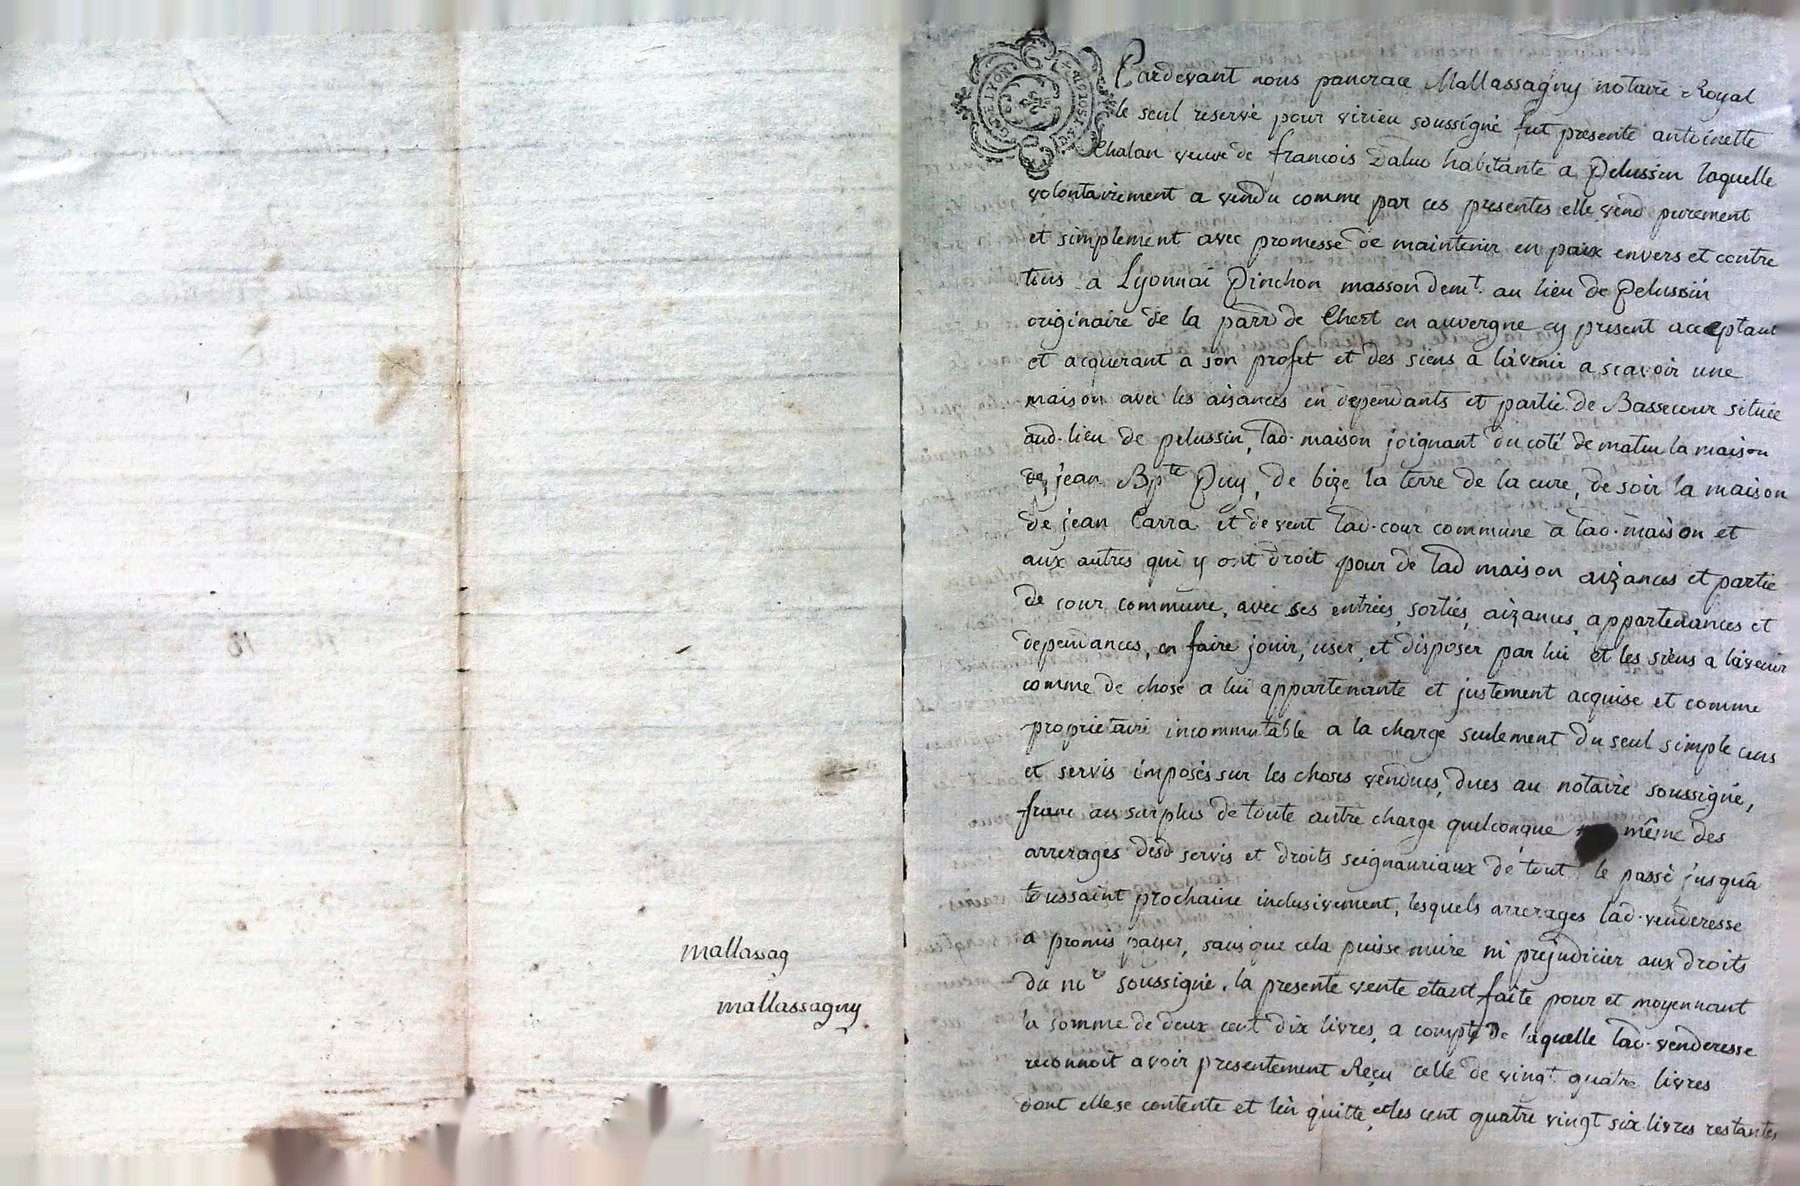 mallassag
mallassagny
Pardevant nous pancrace Mallassagny notaire Royal
le seul reservé pour virieu soussigné fut presente antoinette
Chalan veuve de francois Daluo habitante a Pelussin laquelle
volontairement a vendu comme par ces presentes elle vend purement
et simplement avec promesse de maintenir en paix envers et contre
tous a Lyonnai Pinchon masson demt. au lieu de Pelussin
originaire de la parr de Chert en auvergne cy present acceptant
et acquerant a son profit et des siens a l'avenir a scavoir une
maison avec les aisances en dependants et partie de Bassecour située
aud. lieu de pelussin, lad. maison joignant du coté de matin la maison
de jean Bpte Puy, de bize la terre de la cure, de soir la maison
de jean Carra et de vent lad. cour commune a lad. maison et
aux autres qui y ont droit pour de lad maison aizances et partie
de cour commune, avec ses entrées, sorties, aizances, appartenances et
dependances, en faire jouir, user, et disposer par lui et les siens a l'avenir
comme de chose a lui appartenante et justement acquise et comme
proprietaire incommutable a la charge seulement du seul simple cens
et servis imposés sur les choses vendues, dues au notaire soussigné,
franc au surplus de toute autre charge quelconque même des
arrerages desd servis et droits seignauriaux de tout le passé jusqu'a
toussaint prochaine inclusivement, lesquels arrerages lad. venderesse
a promis payer, sans que cela puisse nuire ni prejudicier aux droits
du nre soussigné. la presente vente etant faite pour et moyennant
la somme de deux cent dix livres, a compte de laquelle lad. venderesse
reconnoit avoir presentement Reçu celle de vingt quatre livres
dont elle se contente et l'en quitte, et les cent quatre vingt six livres restantes